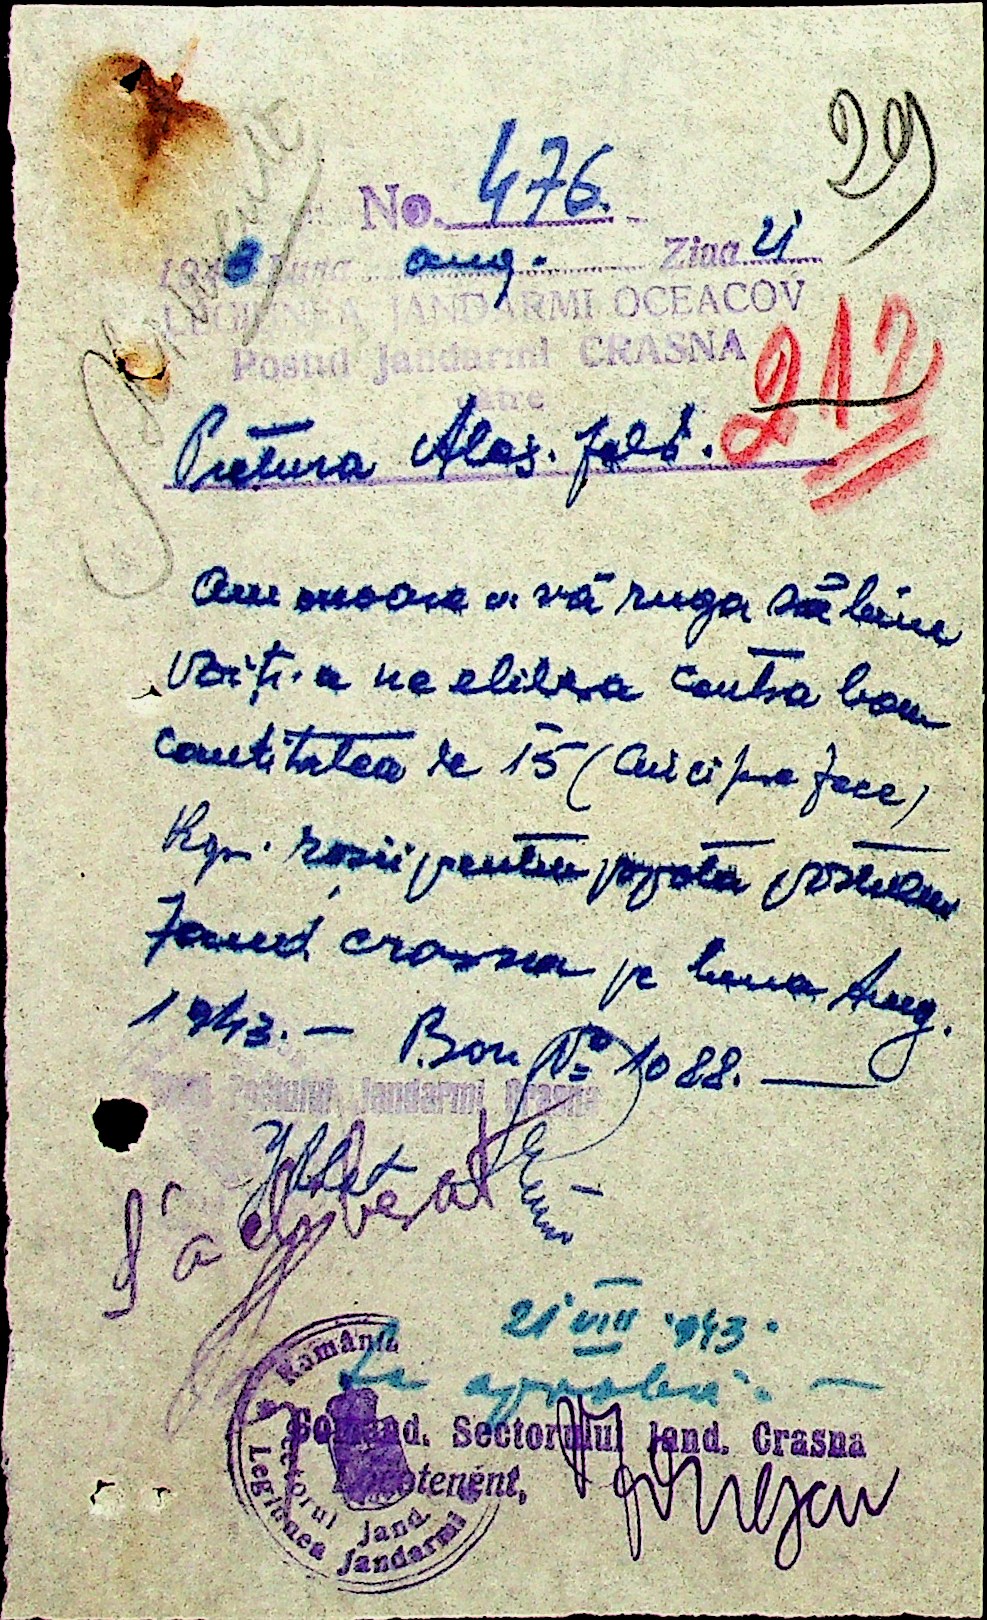 29)
No. 476.
1943 Luna aug. Ziua 21
LEGIUNEA JANDARMI OCEACOV
Postul Jandarmi CRASNA
către
217
Pretura Alex. feld.
Am onoare a vă ruga să bine
voiți a ne elibera contra bon
cantitatea de 15 (cincisprezece)
Kgr. rosii pentru popota postului
Jand. Crasna pe luna Aug.
1943. — Bon No 1088. —
Postului Jandarmi Crasna
S'a eliberat
21 VIII 943.
Se aprobă. —
Comand. Sectorului Jand. Crasna
Locotenent,
România
Sectorul Jand.
Legiunea Jandarmi